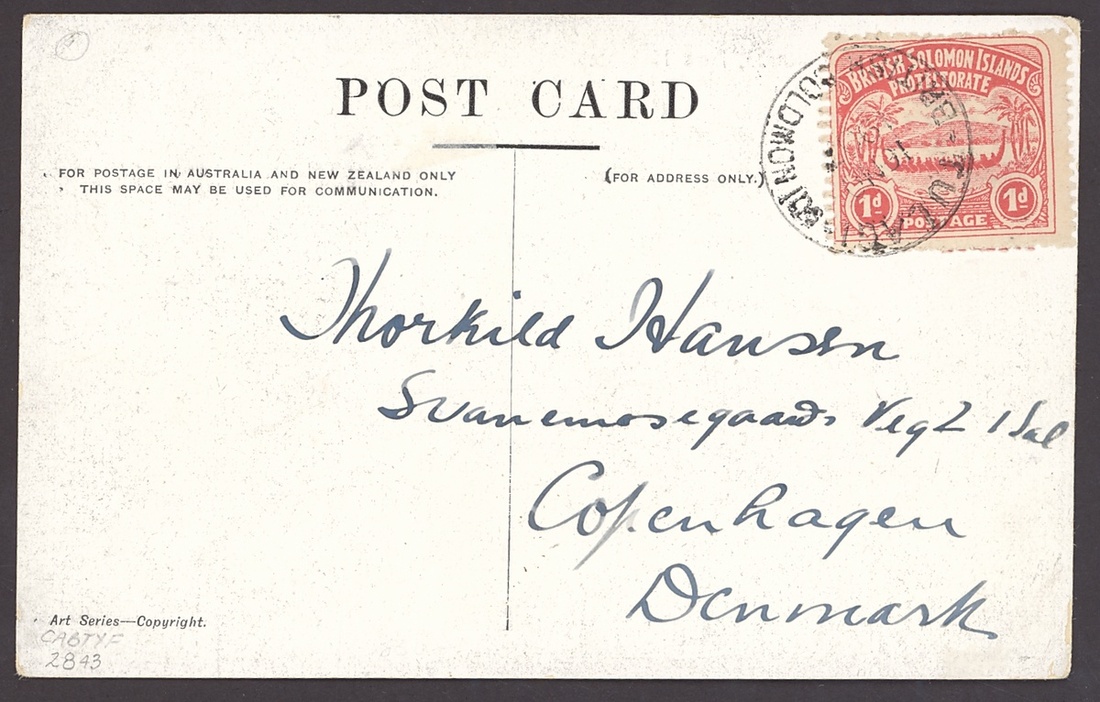 POST CARD
FOR POSTAGE IN AUSTRALIA AND NEW ZEALAND ONLY
THIS SPACE MAY BE USED FOR COMMUNICATION.
(FOR ADDRESS ONLY.)
BRITISH SOLOMON ISLANDS
PROTECTORATE
1d POSTAGE 1d
TULAGI
SOLOMON
Thorkild Hansen
Svanemosegaards Veg 2 1 Sal
Copenhagen
Denmark
Art Series—Copyright.
CABTYF
2843